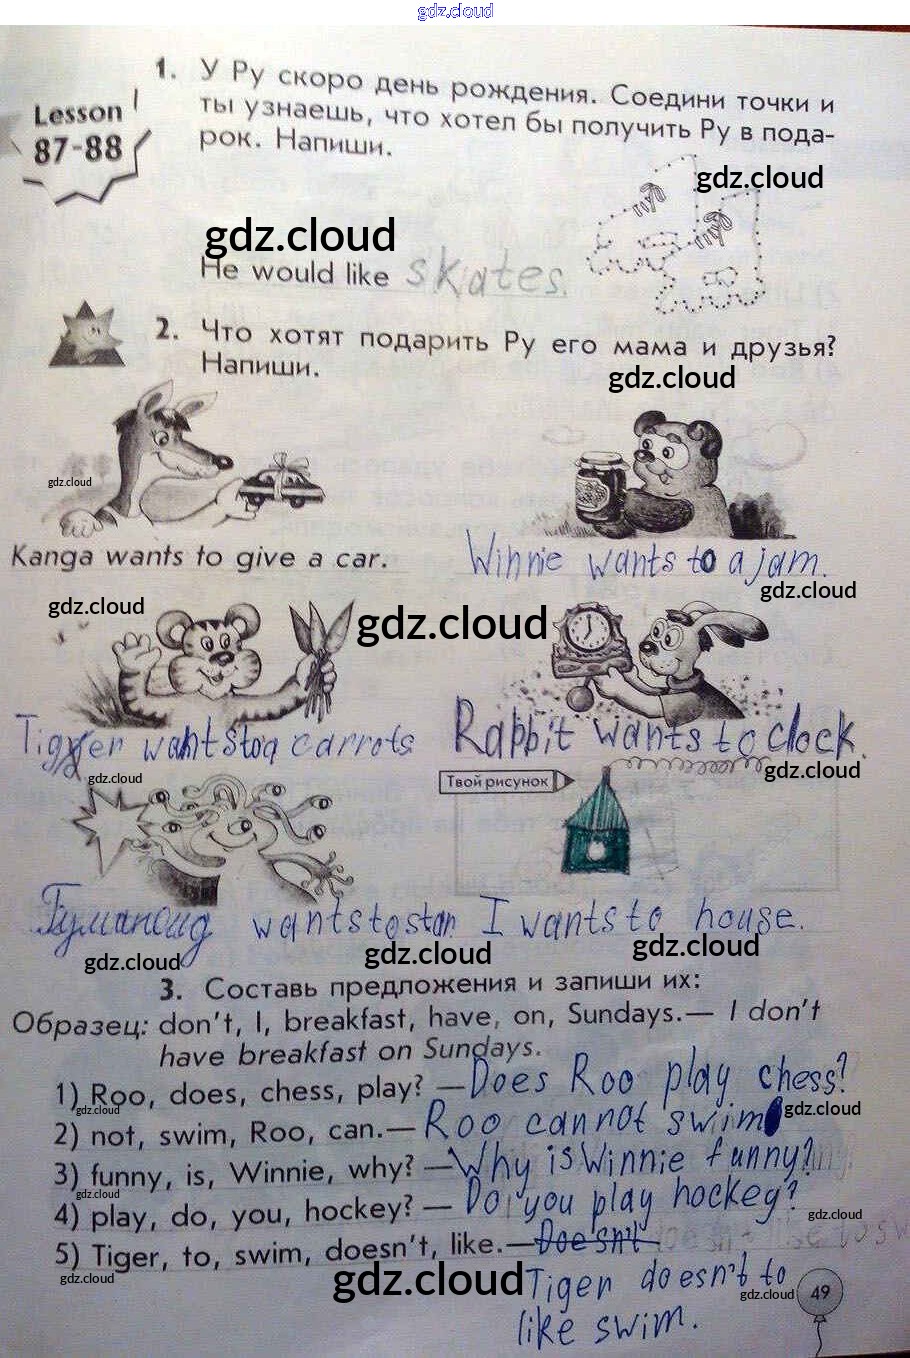 gdz.cloud
1. У Ру скоро день рождения. Соедини точки и
Lesson
ты узнаешь, что хотел бы получить Ру в пода-
87-88
рок. Напиши.
gdz.cloud
gdz.cloud
He would like skates.
2. Что хотят подарить Ру его мама и друзья?
Напиши.
gdz.cloud
gdz.cloud
Kanga wants to give a car.
Winnie wants to a jam.
gdz.cloud
gdz.cloud
gdz.cloud
Tigger wants to a carrots
Rabbit wants to clock.
gdz.cloud
gdz.cloud
Твой рисунок
Гуманоид wants to star.
I wants to house.
gdz.cloud
gdz.cloud
gdz.cloud
3. Составь предложения и запиши их:
Образец: don't, I, breakfast, have, on, Sundays.— I don't
have breakfast on Sundays.
1) Roo, does, chess, play? — Does Roo play chess?
gdz.cloud
gdz.cloud
2) not, swim, Roo, can.— Roo cannot swim
3) funny, is, Winnie, why? — Why is Winnie funny?
gdz.cloud
4) play, do, you, hockey? — Do you play hockey?
gdz.cloud
5) Tiger, to, swim, doesn't, like.— Doesn't
gdz.cloud
gdz.cloud
Tiger doesn't to
gdz.cloud
49
like swim.